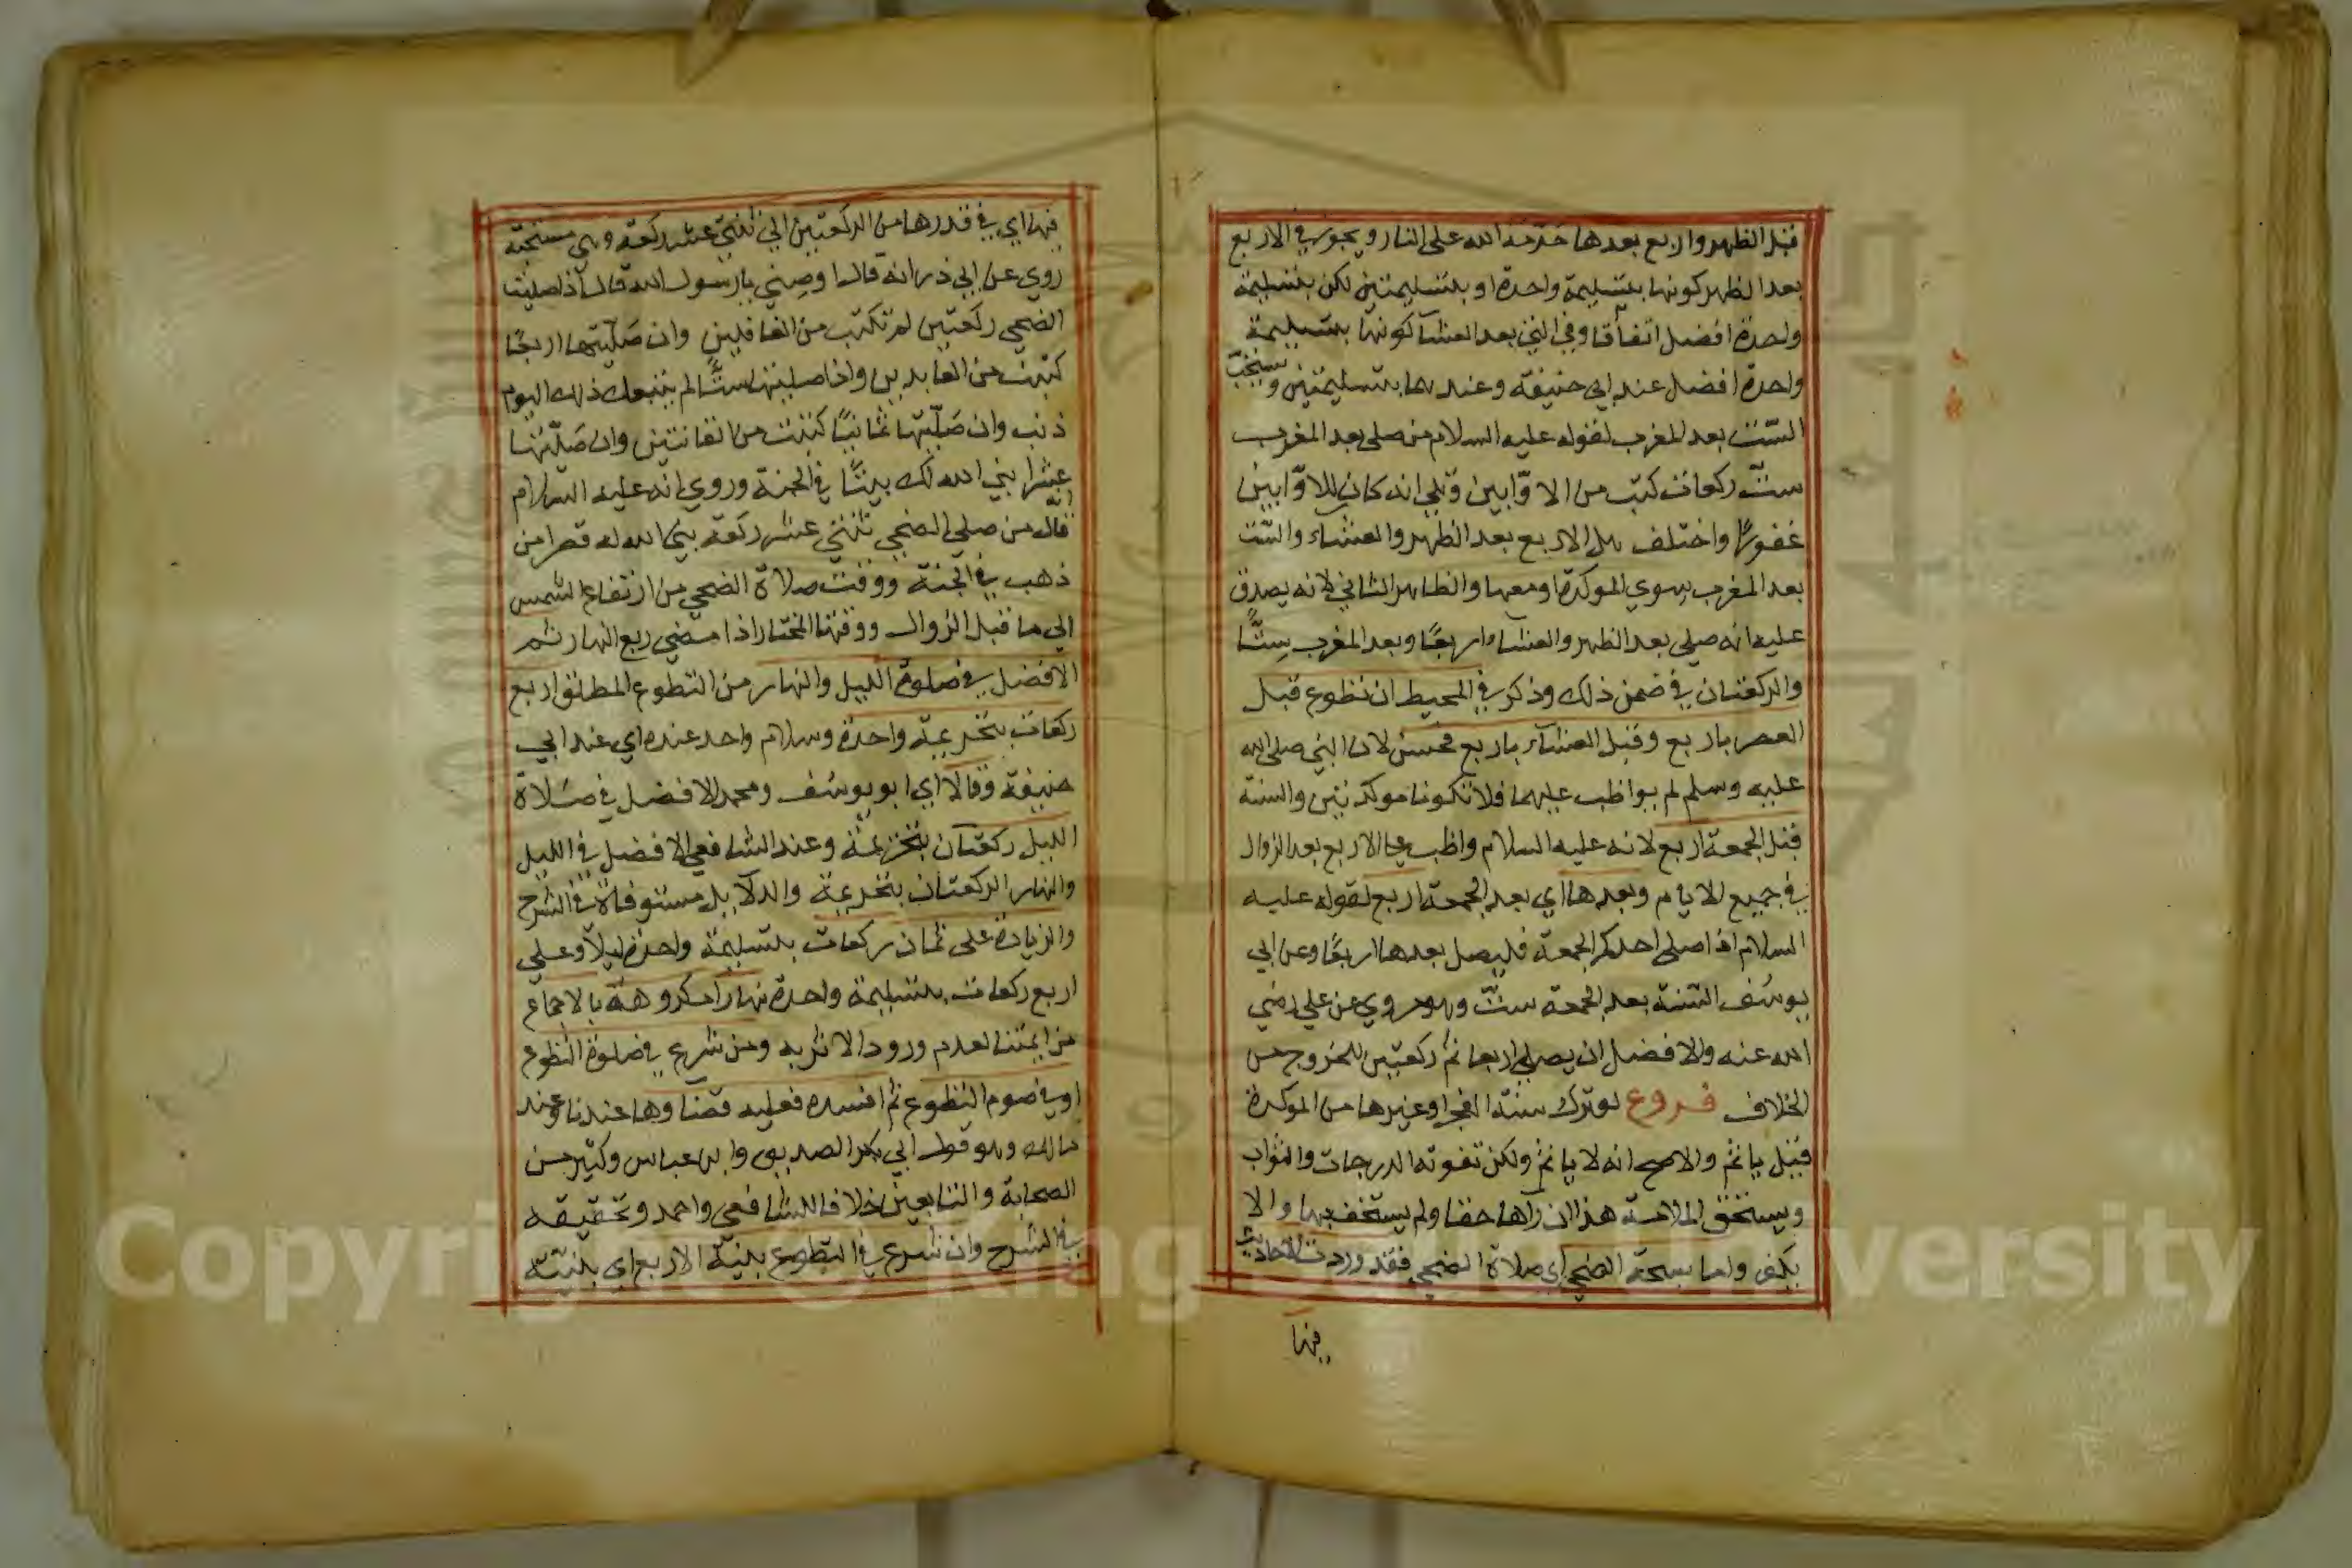 قبل الظهر واربع بعدها حرّمه الله على النار ويجوز في الاربع
بعد الظهر كونها بتسليمة واحدة او بتسليمتين لكن بتسليمة
واحدة افضل اتفاقا وفي التي بعد العشآ كونها بتسليمة
واحدة افضل عند ابي حنيفة وعندهما بتسليمتين ويستحبّ
السّت بعد المغرب لقوله عليه السلام من صلى بعد المغرب
ستّ ركعات كتب من الاوّابين وتلى انه كان للاوّابين
غفورًا واختلف هل الاربع بعد الظهر والعشاء والسّت
بعد المغرب سوي الموكدة او معها والظاهر الثاني لانه يصدق
عليه انه صلى بعد الظهر والعشاء اربعًا وبعد المغرب سِتًّا
والركعتان في ضمن ذلك وذكر في المحيط ان تطوع قبل
العصر باربع وقبل العشآء باربع فحسن لان النبي صلى الله
عليه وسلم لم يواظب عليهما فلا تكونا موكدتين والسنة
قبل الجمعة اربع لانه عليه السلام واظب على الاربع بعد الزوال
في جميع الايام وبعدها اي بعد الجمعة اربع لقوله عليه
السلام اذا صلى احدكم الجمعة فليصل بعدها اربعًا وعن ابي
يوسُف السّنة بعد الجمعة ستّ وهو مروي عن علي رضي
الله عنه والافضل ان يصلي اربعا ثم ركعتين للخروج من
الخلاف فروع لو ترك سنة الفجر او غيرها من الموكدة
قيل ياثم والاصح انه لا ياثم ولكن تفوته الدرجات والثواب
ويستحق الملامة هذا ان رآها حقا ولم يستخف بها والا
يكفر واما سبحة الضحى اي صلاة الضحى فقد وردت الاحاديث
فيها
فيها اي في قدرها من الركعتين الي ثنتي عشر ركعة وهي مستحبّة
روي عن ابي ذر انه قال اوصِني يا رسول الله قال اذا صليت
الضحى ركعتين لم تكتب من الغافلين وان صَلّيتها اربعًا
كتبت من العابدين واذا صليتها ستًّا لم يتبعك ذلك اليوم
ذنب وان صَلّيتها ثمانيًا كتبت من القانتين وان صَلّيتها
عشرا بني الله لك بيتًا في الجنة وروي انه عليه السلام
انه قال من صلي الضحى ثنتي عشر ركعة بنى الله له قصرا من
ذهب في الجنة ووقت صلاة الضحى من ارتفاع الشمس
الي ما قبل الزوال ووقتها المختار اذا مضى ربع النهار ثم
الافضل في صلوة الليل والنهار من التطوع المطلق اربع
ركعات بتحريمة واحدة وسلام واحد عنده اي عند ابي
حنيفة وقالا اي ابو يوسُف ومحمد الافضل في صَلاة
الليل ركعتان بتحريمة وعند الشافعي الافضل في الليل
والنهار الركعتان بتحريمة والدلايل مستوفاة في الشرح
والزيادة على ثمان ركعات بتسليمة واحدة ليلا وعلي
اربع ركعات بتسليمة واحدة نهارا مكروهة بالاجماع
من ايمتنا لعدم ورود الاثر به ومن شرع في صلوة التطوع
او في صوم التطوع ثم افسده فعليه قضاوها عندنا وعند
مالك وهو قول ابي بكر الصديق وابن عباس وكثير من
الصحابة والتابعين خلافا للشافعي واحمد وتحقيقه
في الشرح وان شرع في التطوع بنيّة الاربع اي بنيّته
Copyright © King Saud University